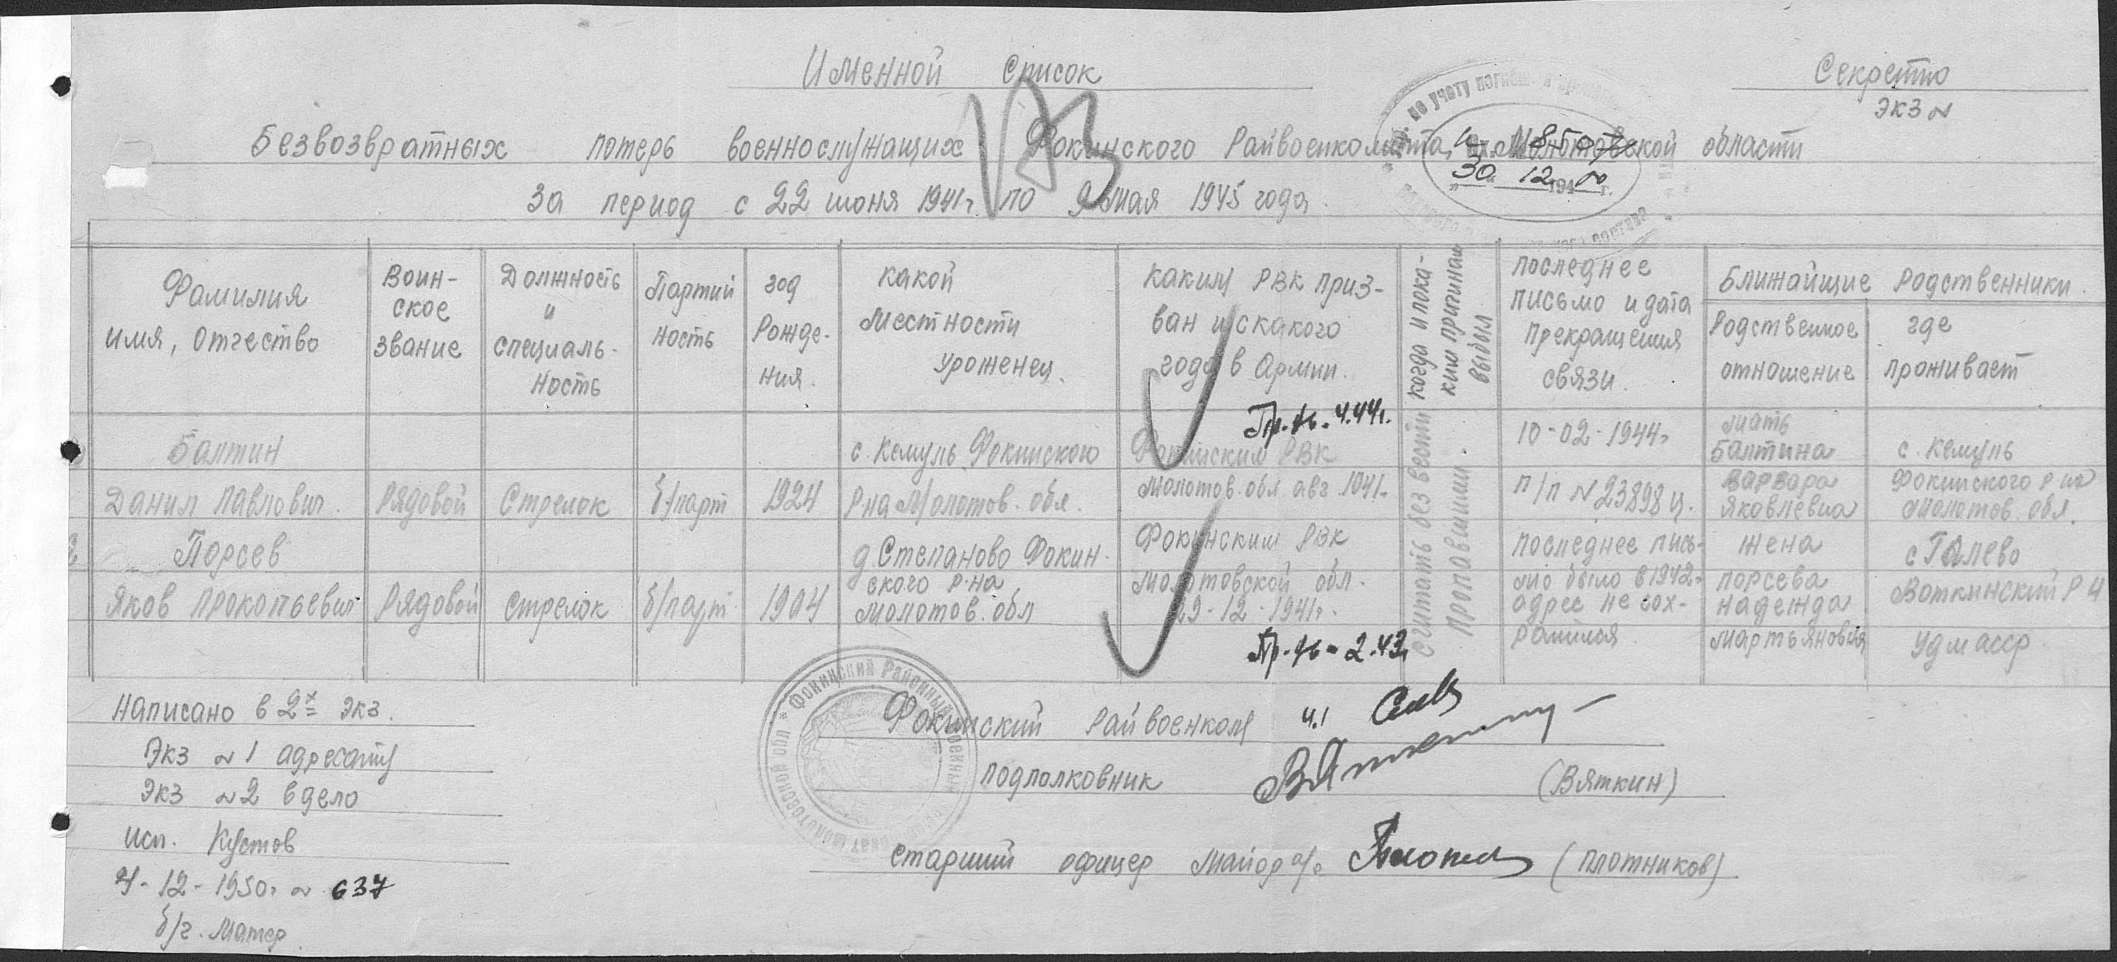 Именной список
Секретно
экз N
Безвозвратных потерь военнослужащих Фокинского Райвоенкомата, Молотовской области
за период с 22 июня 1941г. по 9 мая 1945 года
30 12 194 г.
Фамилия имя, отчество
Воин-
ское
звание
Должность
и
специаль-
ность
Партий
ность
год
Рожде-
ния.
какой
местности
уроженец.
каким РВК приз-
ван и с какого
года в Армии.
когда и по ка-
ким причинам
выбыл
последнее
письмо и дата
прекращения
связи.
Ближайшие Родственники.
Родственное
отношение
где
проживает
Балтин
Данил Павлович.
Рядовой
Стрелок
б/парт
1924
с. Кемуль Фокинского
Р-на Молотов. обл.
Пр.-4.44г.
Фокинским РВК
Молотов. обл. авг. 1941г.
Считать без вести
пропавшими.
10-02-1944г
п/п N 23898 ц.
мать
Балтина
Варвара
Яковлевна
с. Кемуль
Фокинского р-на
Молотов. обл.
Порсев
Яков Прокопьевич
Рядовой
стрелок
б/парт.
1904
д Степаново Фокин-
ского р-на
Молотов. обл
Фокинским РВК
Молотовской обл.
29-12-1941г.
Пр. 2.43г
последнее пись-
мо было в 1942г
адрес не сох-
ранился.
жена
порсева
надежда
мартьяновна
с Галево
Воткинский Р-н
Удм асср.
Написано в 2х экз.
Экз N 1 адресату
Экз N 2 в дело
исп. Кустов
-12-1950г. N 637
б/ч. Матер
Фокинский Райвоенком
подполковник (Вяткин)
старший офицер Майор а/с (плотников)